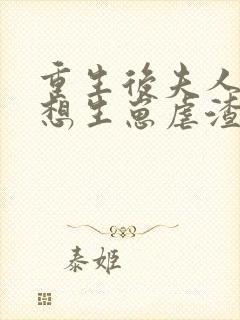 重生後夫人
想生崽虐渣
泰姬